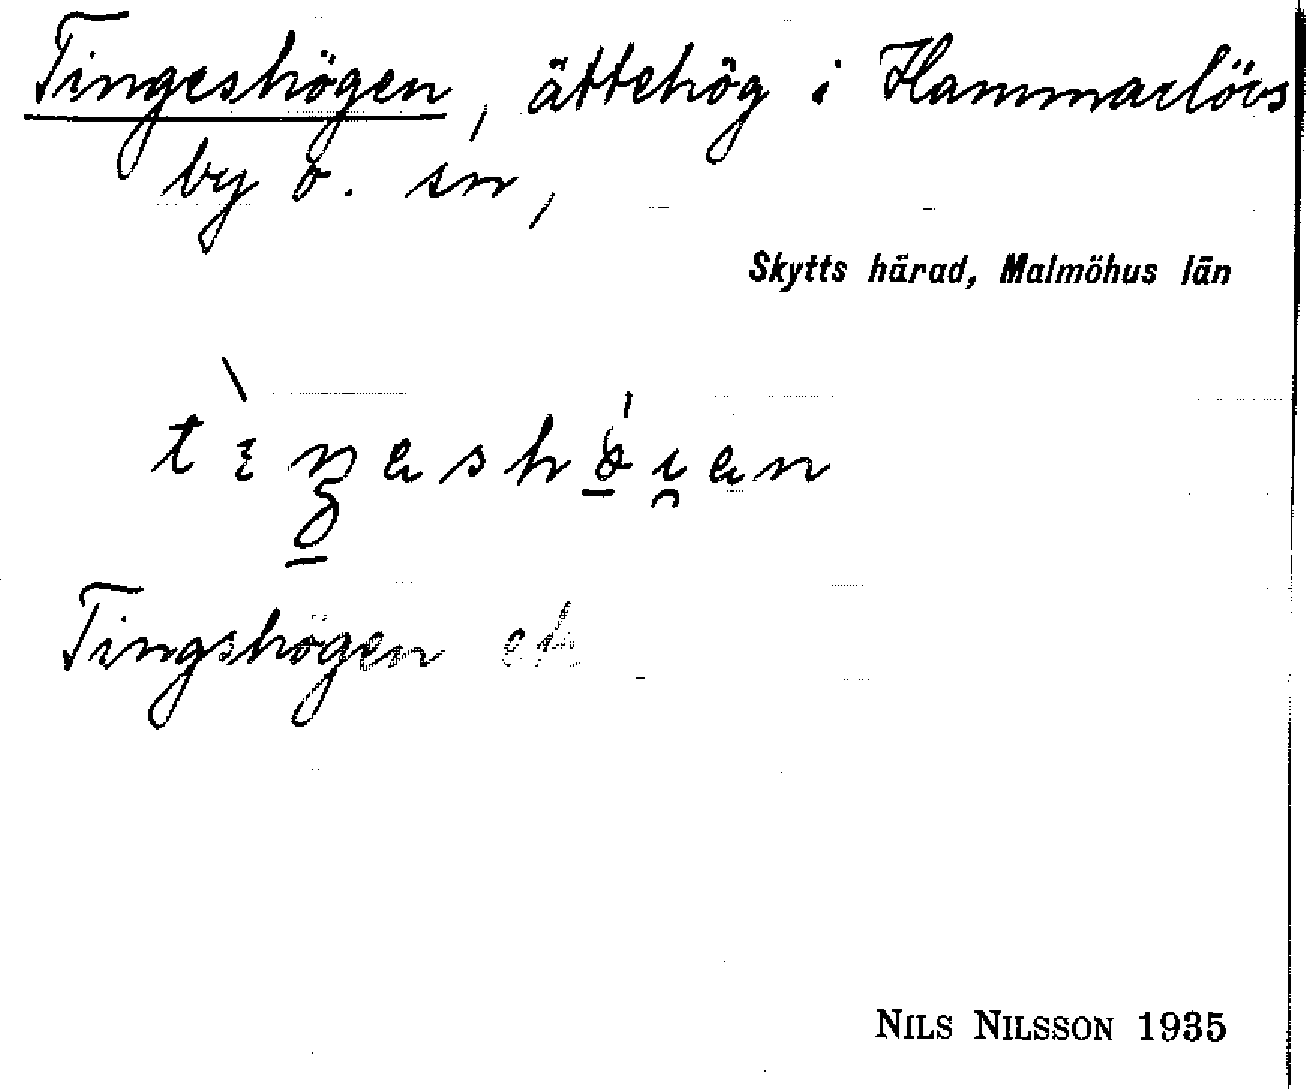 Tingeshögen, ättehög i Hammarlövs
by o. sn,
Skytts härad, Malmöhus län
Tingshögen ek
NILS NILSSON 1935